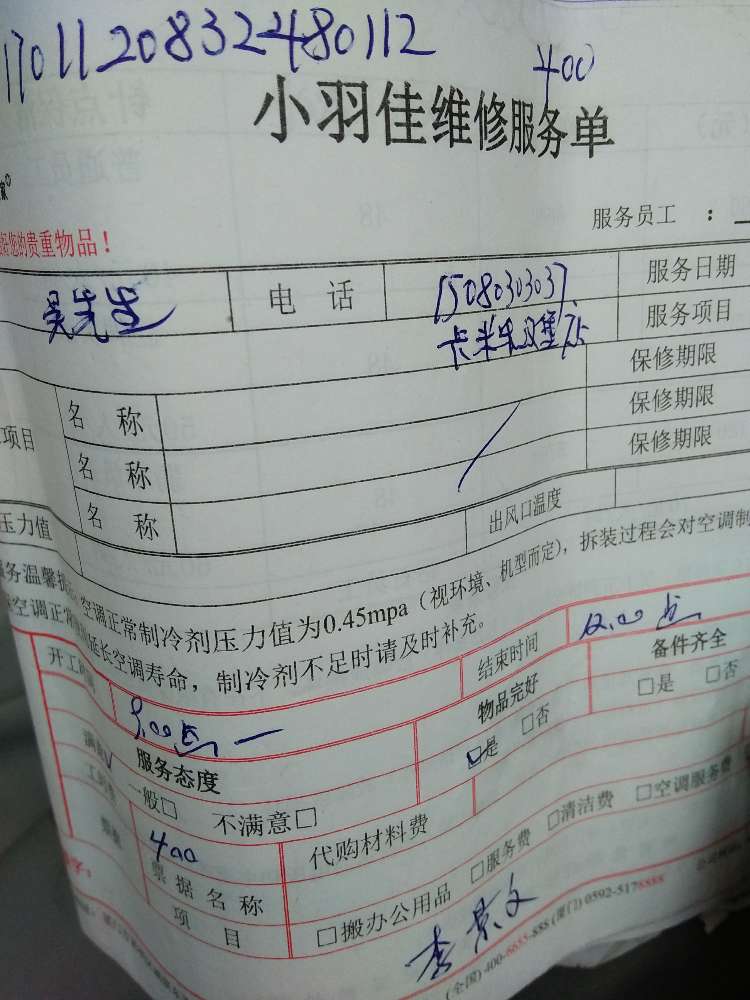 1701120832480112
400
小羽佳维修服务单
服务员工 ：
您的贵重物品！
吴先生 电 话 1508030303 服务日期
卡米乐汉堡店 服务项目
保修期限
项目 名 称 保修期限
名 称 保修期限
名 称
压力值 出风口温度
空调正常制冷剂压力值为0.45mpa（视环境、机型而定），拆装过程会对空调制
延长空调寿命，制冷剂不足时请及时补充。
开工 9.00点 结束时间 12.00点
服务态度 物品完好 备件齐全
一般□ 不满意□ □是 □否 □是 □否
400 代购材料费
票据名称 □服务费 □清洁费 □空调服务费
项 目 □搬办公用品
李景文
(全国)400-6655-888 (厦门)0592-5178888